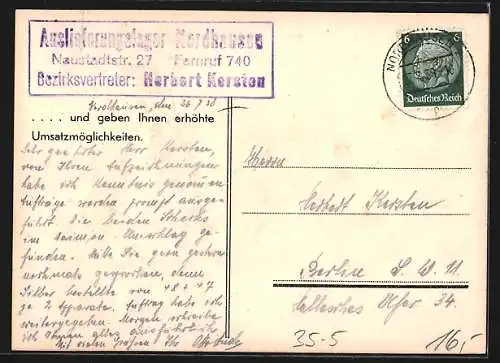 Auslieferungslager Nordhausen
Neustadtstr. 27 Fernruf 740
Bezirksvertreter: Herbert Kersten
Nordhausen, den
. . . . und geben Ihnen erhöhte
Umsatzmöglichkeiten.
Sehr geehrter Herr Kersten,
von Ihren Aufzeichnungen
habe ich Kenntnis genommen
Aufträge werden prompt ausge-
führt. Die beiden Schecks
im Umschlag ge-
funden. Sie gern gestern
nochmals gesprochen, denn
bestellte von 48 + 47
je 2 Apparate. Auftrag habe ich
weitergegeben. Morgen schreibe
ich Ihnen alles ausführlich
Mit vielen Grüßen Ihr
6 6
Deutsches Reich
Herrn
Herbert Kersten
Berlin S.W. 11
Hallesches Ufer 34.
35-5
16,-